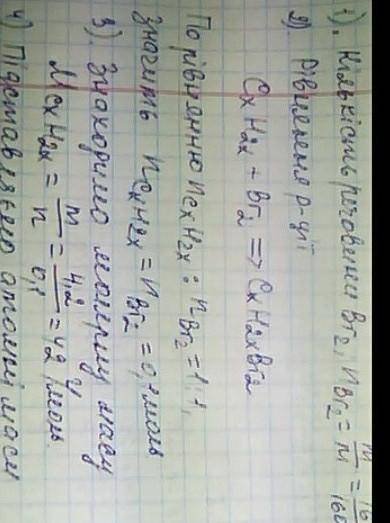 1). Кількість речовини Br₂, n Br₂ = m/M = 16/160
2) Рівняння р-ції
CxH2x + Br₂ => CxH2xBr₂
По рівнянню n CxH2x : n Br₂ = 1:1,
значить n CxH2x = n Br₂ = 0,1 моль
3). Знаходимо молярну масу
M CxH2x = m/n = 4,2/0,1 = 42 г/моль.
4) Підставляємо атомні маси